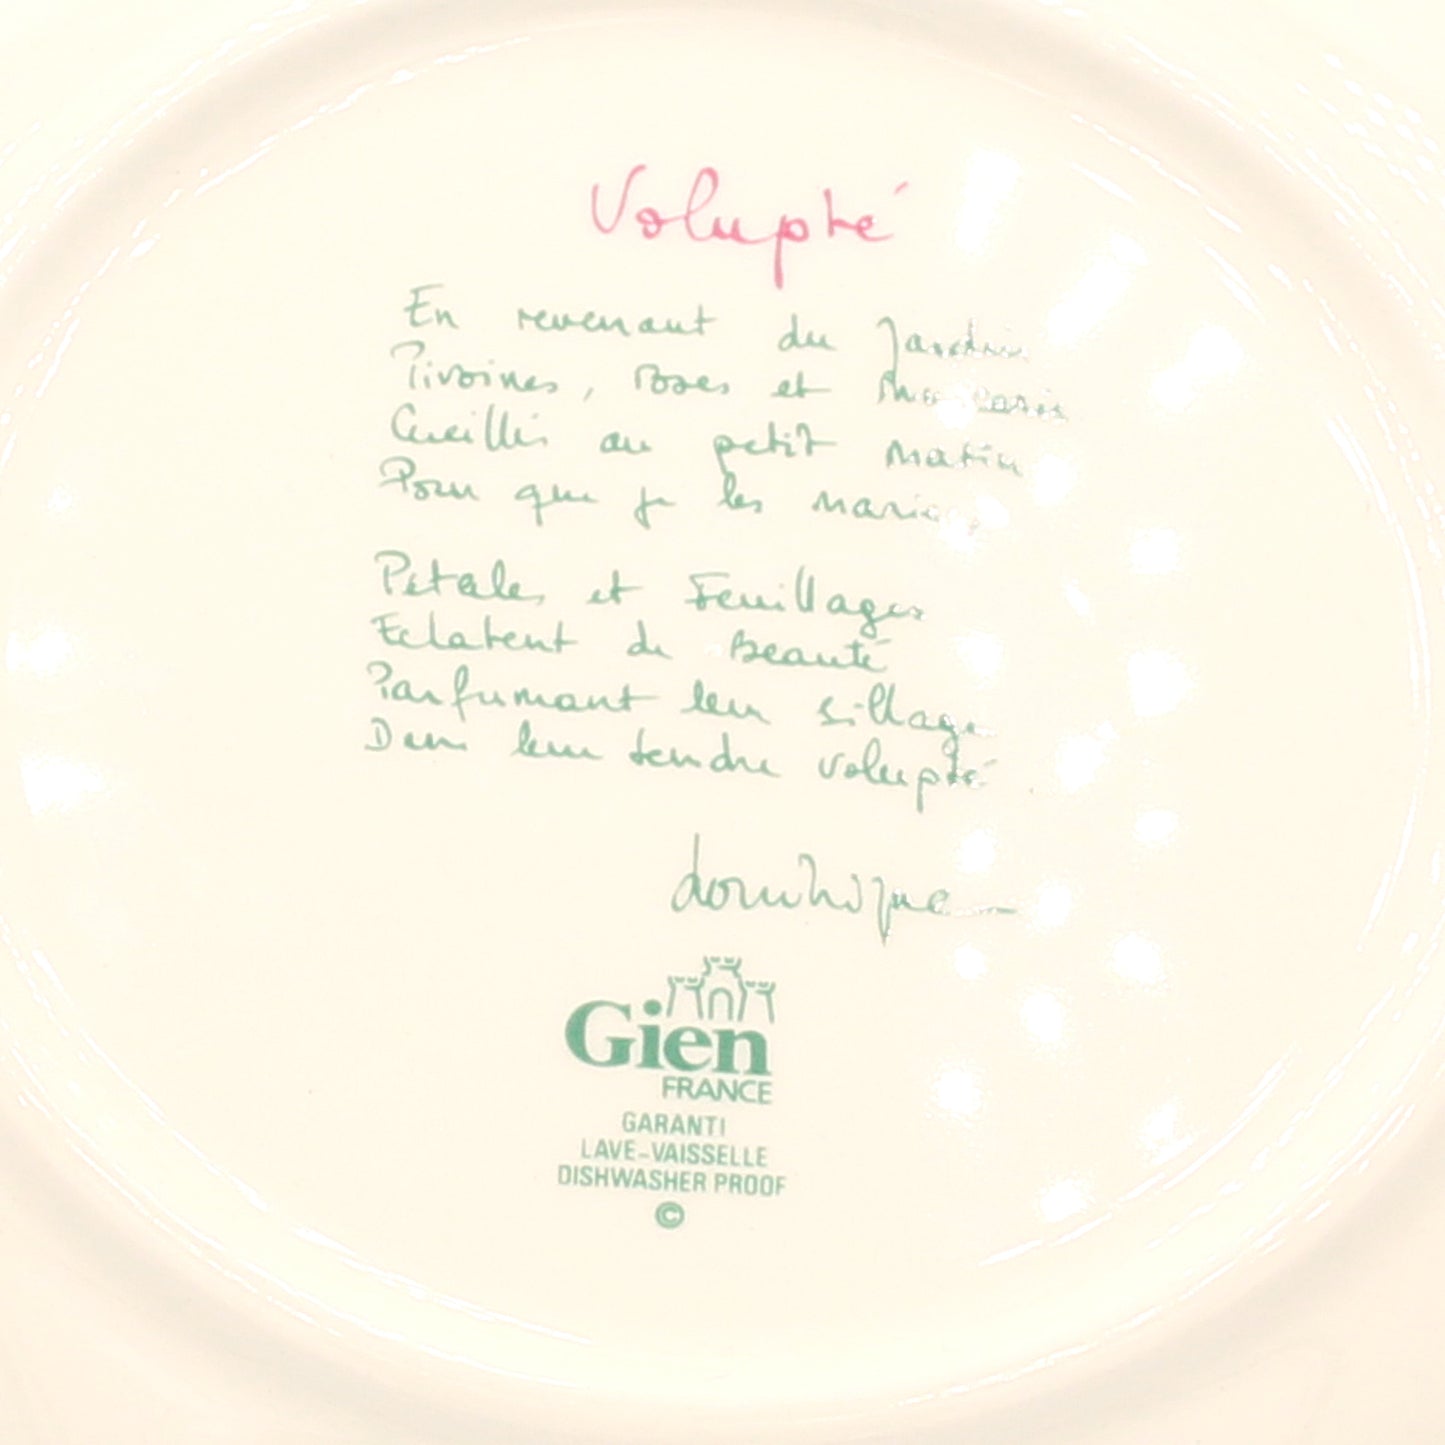 Volupté
En revenant du Jardin
Pivoines, roses et Muscaris
Cueillis au petit matin
Pour que je les marie
Petales et Feuillages
Eclatent de Beauté
Parfumant leur sillage
De leur tendre volupté
dominique
Gien
FRANCE
GARANTI
LAVE-VAISSELLE
DISHWASHER PROOF
©